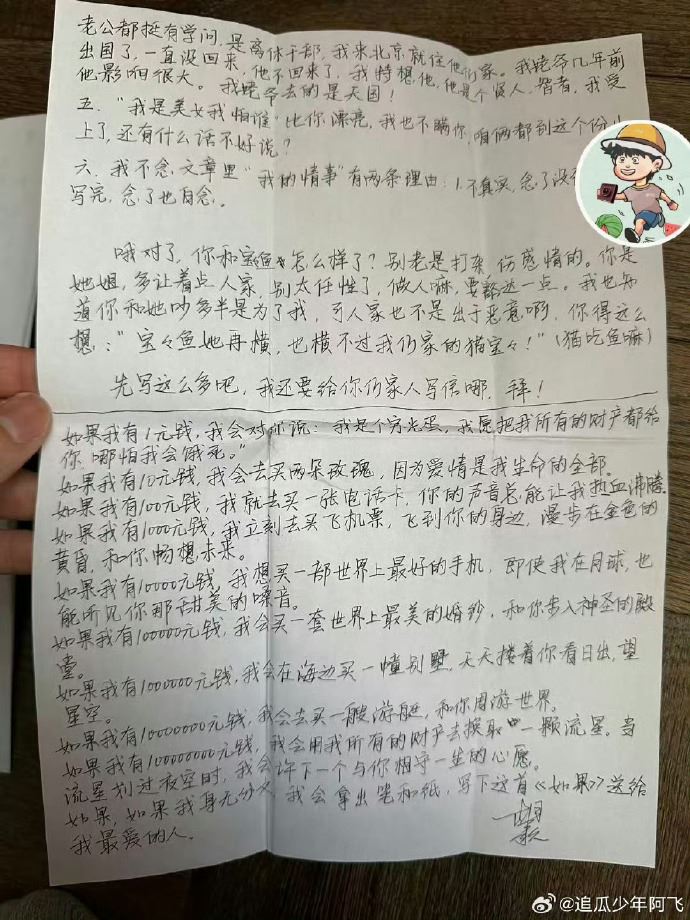 老公都挺有学问,是离休干部,我来北京就住他们家。我姥爷几年前
出国了,一直没回来,他不回来了,我特想他,他是个贤人、智者,我受
他影响很大。我姥爷去的是天国!
五."我是美女我怕谁"比你漂亮,我也不瞒你,咱俩都到这个份儿
上了,还有什么话不好说?
六.我不念文章里"我的情事"有两条理由:1.不真实,念了没
写完,念了也白念。
哦对了,你和宝鱼怎么样了?别老是打杂,伤感情的。你是
她姐,多让着点人家,别太任性了,做人嘛,要豁达一点。我也知
道你和她吵多半是为了我,可人家也不是出于恶意啊,你得这么
想:"宝々鱼她再横,也横不过我们家的猫宝々!"(猫吃鱼嘛)
先写这么多吧,我还要给你们家人写信哪,拜!
如果我有1元钱,我会对你说:"我是个穷光蛋,我愿把我所有的财产都给
你,哪怕我会饿死。"
如果我有10元钱,我会去买两朵玫瑰,因为爱情是我生命的全部。
如果我有100元钱,我就去买一张电话卡,你的声音总能让我热血沸腾。
如果我有1000元钱,我立刻去买飞机票,飞到你的身边,漫步在金色的
黄昏,和你畅想未来。
如果我有10000元钱,我想买一部世界上最好的手机,即使我在月球,也
能听见你那甜美的嗓音。
如果我有100000元钱,我会买一套世界上最美的婚纱,和你步入神圣的殿
堂。
如果我有1000000元钱,我会在海边买一幢别墅,天天搂着你看日出,望
星空。
如果我有10000000元钱,我会去买一艘游艇,和你周游世界。
如果我有100000000元钱,我会用我所有的财产去换取一颗流星。当
流星划过夜空时,我会许下一个与你相守一生的心愿。
如果,如果我身无分文,我会拿出笔和纸,写下这首《如果》送给
我最爱的人。
@追瓜少年阿飞